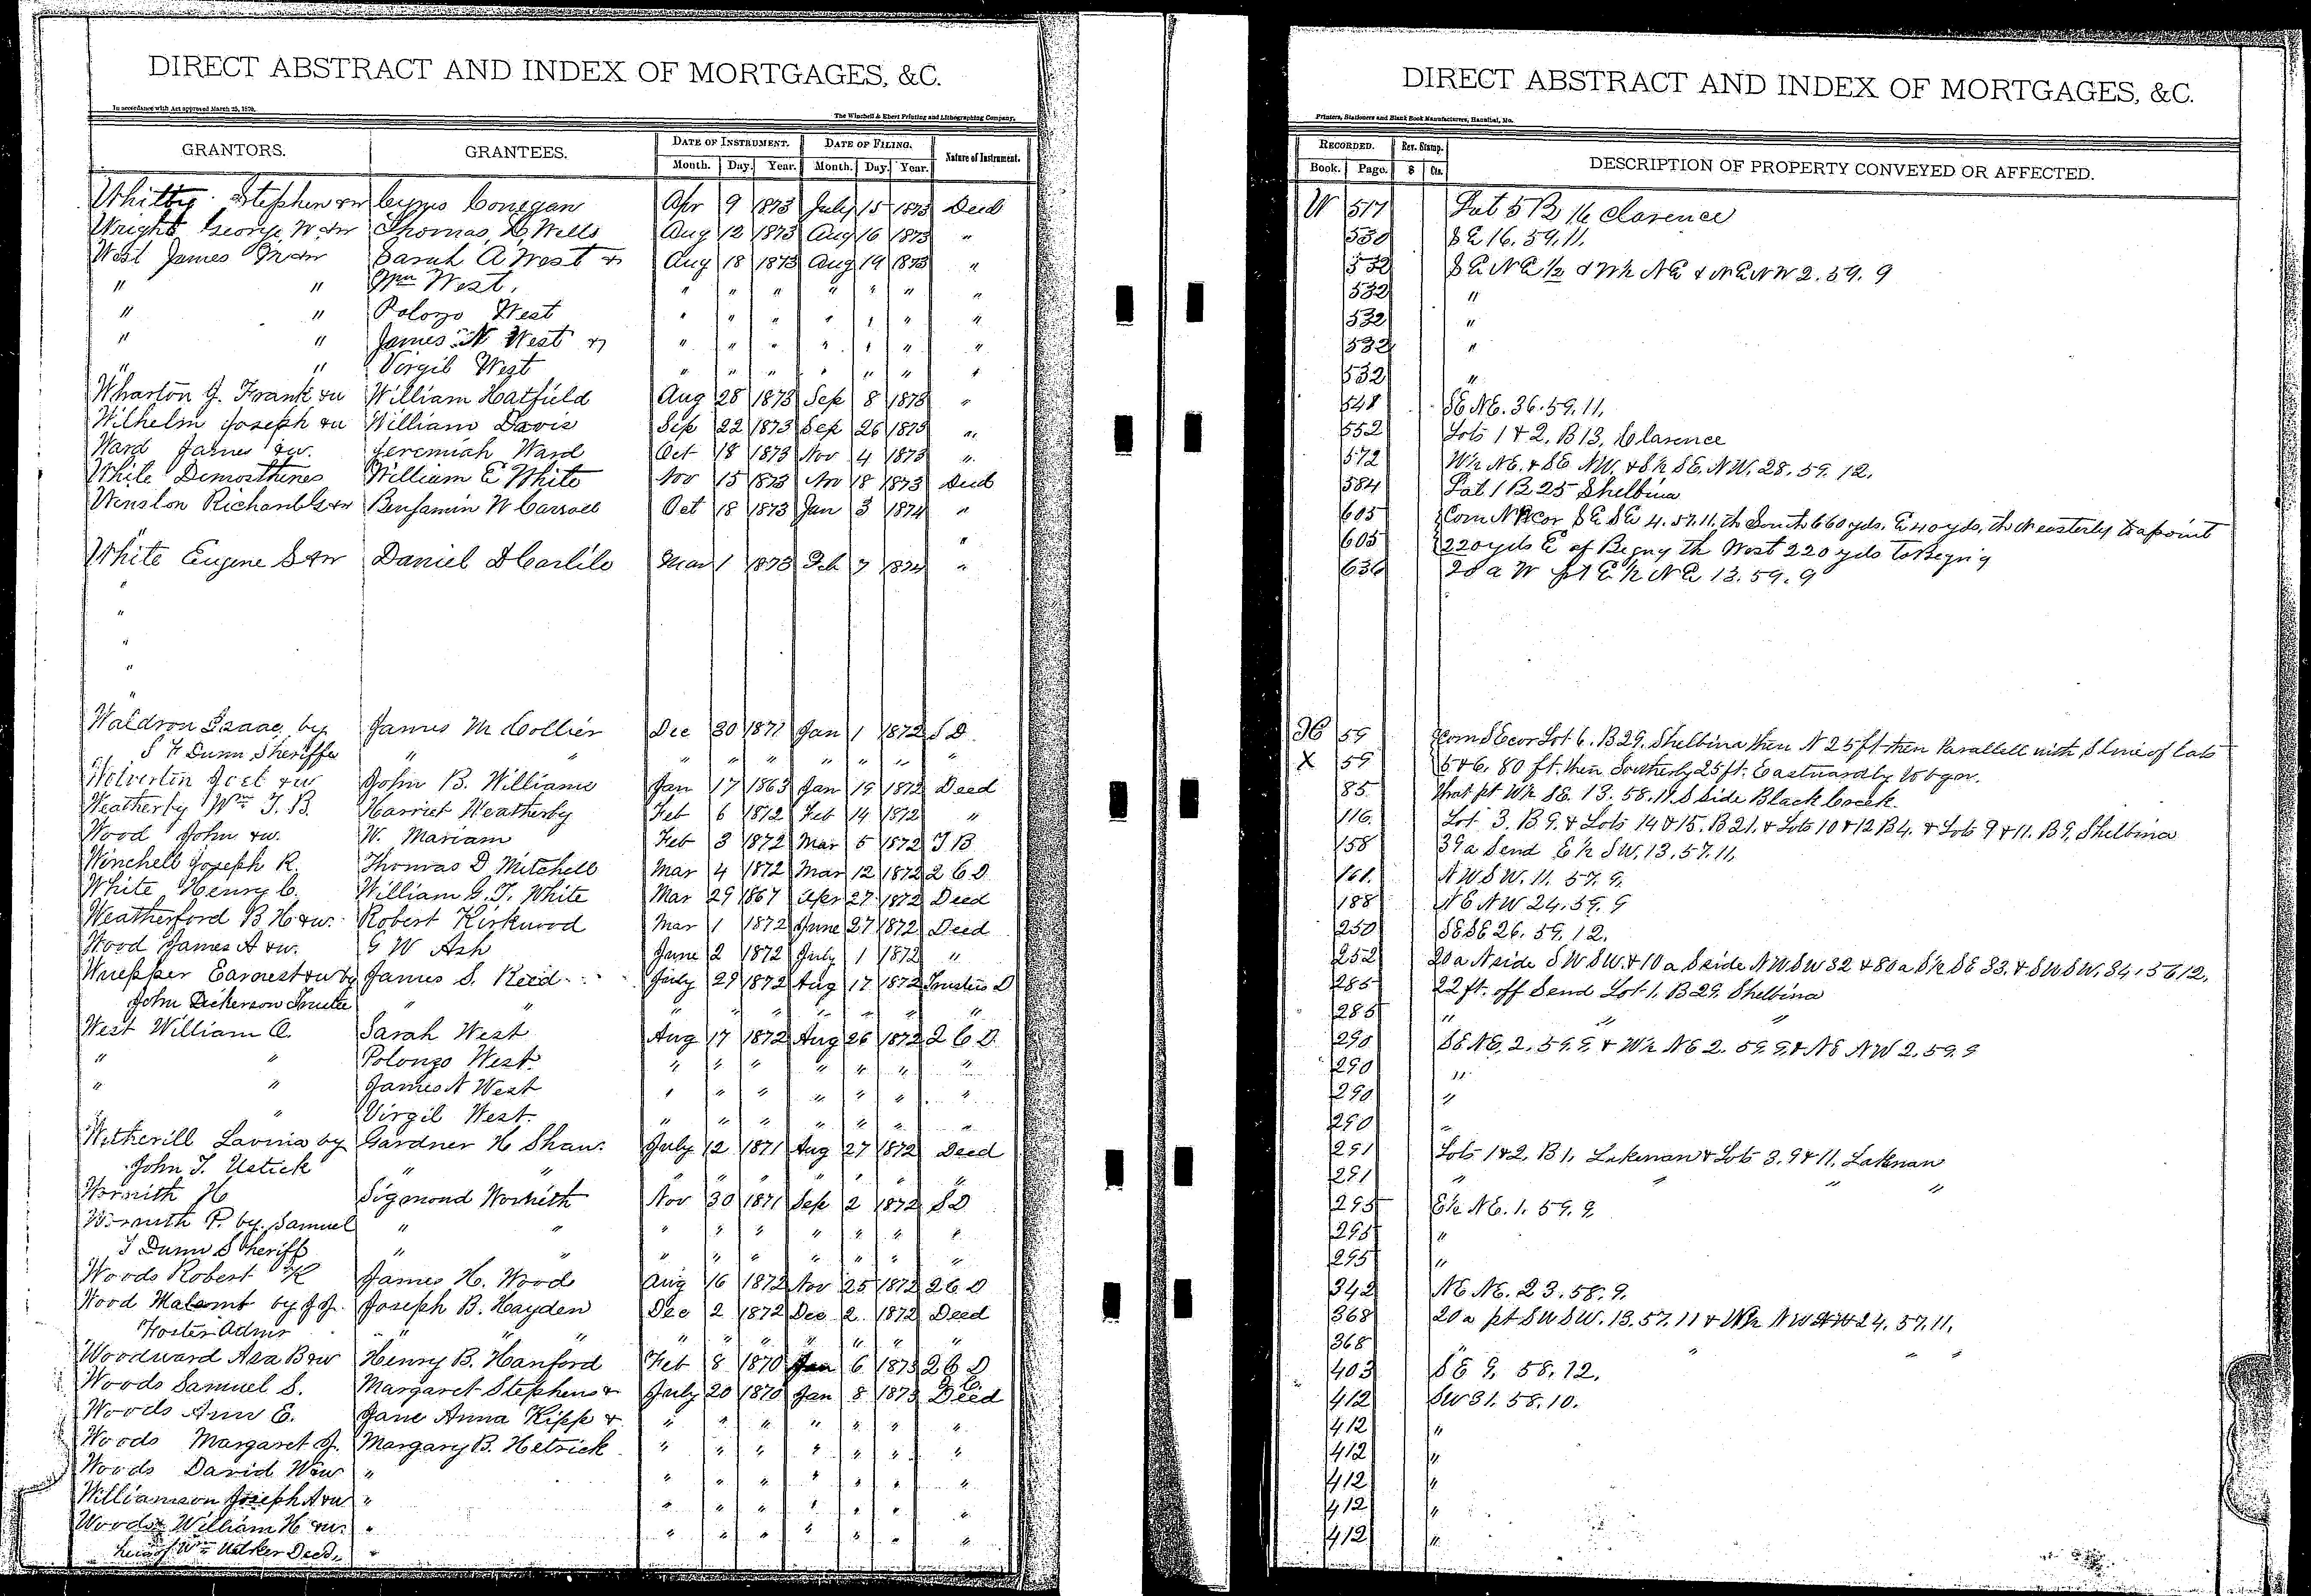 DIRECT ABSTRACT AND INDEX OF MORTGAGES, &C.
In accordance with Act approved March 25, 1873.
The Winchell & Ebert Printing and Lithographing Company,
GRANTORS. GRANTEES. DATE OF INSTRUMENT. DATE OF FILING. Nature of Instrument.
Month. Day. Year. Month. Day. Year.
Whitby Stephen &w Cyrus Conegan Apr 9 1873 July 15 1873 Deed
Wright George W. &w Thomas Wells Aug 12 1873 Aug 16 1873 "
West James M &w Sarah A West & Aug 18 1873 Aug 19 1873 "
" " Wm West, " " " " " " "
" " Polozo West " " " " " " "
" " James N West & " " " " " " "
" " Virgil West " " " " " " "
Wharton J. Frank &w William Hatfield Aug 28 1873 Sep 8 1873 "
Wilhelm Joseph &w William Davis Sep 22 1873 Sep 26 1873 "
Ward James &w. Jeremiah Ward Oct 18 1873 Nov 4 1873 "
White Demosthenes William E White Nov 15 1873 Nov 18 1873 Deed
Winston Richard &w Benjamin W Carroll Oct 18 1873 Jan 3 1874 "
"
White Eugene S &w Daniel D Carlile Mar 1 1873 Feb 7 1874 "
"
"
"
"
"
Waldron Isaac by James M Collier Dec 30 1871 Jan 1 1872 S D
S F Dunn Sheriff " " " " " " " " "
Wolverton Joel &w John B. Williams Jan 17 1863 Jan 19 1872 Deed
Weatherby Wm T. B. Harriet Weatherby Feb 6 1872 Feb 14 1872 "
Wood John &w. W. Mariam Feb 3 1872 Mar 5 1872 T B
Winchell Joseph R. Thomas D Mitchell Mar 4 1872 Mar 12 1872 2 C D
White Henry C. William G. T. White Mar 29 1867 Apr 27 1872 Deed
Weatherford B H &w. Robert Kirkwood Mar 1 1872 June 27 1872 Deed
Wood James A &w. G W Ash June 2 1872 July 1 1872 "
Wuepper Earnest &w by James S. Reid July 29 1872 Aug 17 1872 Trustees D
John Dickerson Trustee " " " " " " " " "
West William A. Sarah West Aug 17 1872 Aug 26 1872 2 C D
" " Polonzo West " " " " " " "
" " James N West " " " " " " "
" Virgil West. " " " " " " "
Witherill Lavinia by Gardner H Shaw. July 12 1871 Aug 27 1872 Deed
John T. Ustick " " " " " " " " "
Wormith H Sigmond Wormith Nov 30 1871 Sep 2 1872 S D
Wormith P. by Samuel " " " " " " " " "
T Dunn Sheriff " " " " " " " " "
Woods Robert K James H. Wood Aug 16 1872 Nov 25 1872 2 C D
Wood by J J. Joseph B. Hayden Dec 2 1872 Dec 2 1872 Deed
Foster Admr " " " " " " " " "
Woodward Asa B &w Henry B. Hanford Feb 8 1870 Jan 6 1873 2 C D
Woods Samuel S. Margaret Stephens & July 20 1870 Jan 8 1873 2 C Deed
Woods Ann E. Jane Anna Kipp & " " " " " " "
Woods Margaret J. Margary B. Hetrick " " " " " " "
Woods David W &w " " " " " " " "
Williamson Joseph A &w " " " " " " " "
Woods William H &w. " " " " " " " "
heirs of Wm Walker Deed. "
DIRECT ABSTRACT AND INDEX OF MORTGAGES, &C.
Printers, Stationers and Blank Book Manufacturers, Hannibal, Mo.
RECORDED. Rev. Stamp. DESCRIPTION OF PROPERTY CONVEYED OR AFFECTED.
Book. Page. $ Cts.
W 517 Lot 5 B 16 Clarence
530 SE 16. 59. 11.
532 SE NE 1/2 & W½ NE & NE NW 2. 59. 9
532 "
532 "
532 "
532 "
548 SE NE. 36. 59. 11.
552 Lots 1 & 2. B 13, Clarence
572 W½ NE. & SE NW. & S½ SE. NW. 28. 59. 12.
584 Lot 1 B 25 Shelbina
605 Com NW cor SE SE 4. 57. 11. th South 660 yds. E 40 yds, th N easterly to a point
605 220 yds E of Begng th West 220 yds to Begnig
636 20 a W pt E ½ NE 13. 59. 9
59 Com SE cor Lot 6. B 29. Shelbina then N 25 ft then Parallell with S line of Lots
X 59 5 & 6, 80 ft. then Southerly 25 ft. Eastwardly to bgn.
85 that pt W½ SE. 13. 58. 11. S side Black Creek
116. Lot 3. B 9. & Lots 14 & 15. B 21. & Lots 10 & 12 B 4. & Lots 9 & 11. B 9, Shelbina
158 39 a S end E ½ SW. 13. 57. 11.
161. NW SW. 11. 57. 9.
188 NE NW 24. 59. 9
250 SE SE 26. 59. 12.
252 20 a N side SW SW. & 10 a S side NW SW 32 & 80 a S½ SE 33. & SW SW. 34. 58 12.
285 22 ft. off S end Lot 1. B 29. Shelbina
285 " " "
290 SE NE. 2. 59. 9. & W½ NE 2. 59. 9 & NE NW 2. 59. 9
290 "
290 "
290 "
291 Lots 1 & 2. B 1. Lakenan & Lots 3. 9 & 11. Lakenan
291 " " " "
295 E½ NE. 1. 59. 9.
295 "
295 "
342 NE NE. 23. 58. 9.
368 20 a pt SW SW. 13. 57. 11 & W½ NW NW 24. 57. 11.
368 " " " "
403 SE 9. 58. 12.
412 SW 31. 58. 10.
412 "
412 "
412 "
412 "
412 "